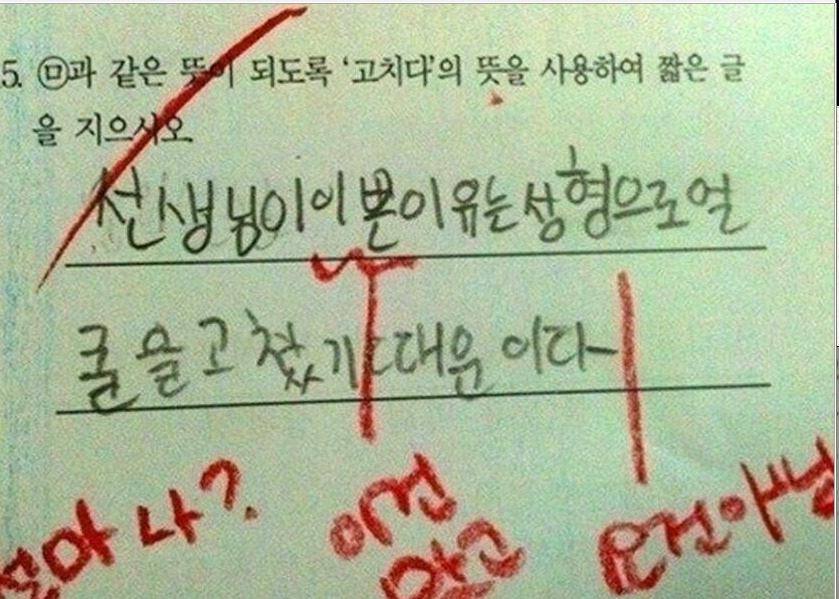 5. ㉤과 같은 뜻이 되도록 '고치다'의 뜻을 사용하여 짧은 글
을 지으시오
선생님이 이쁜이유는 성형으로 얼
굴을 고첬기때문이다
나?
이건
맞고
요건아님